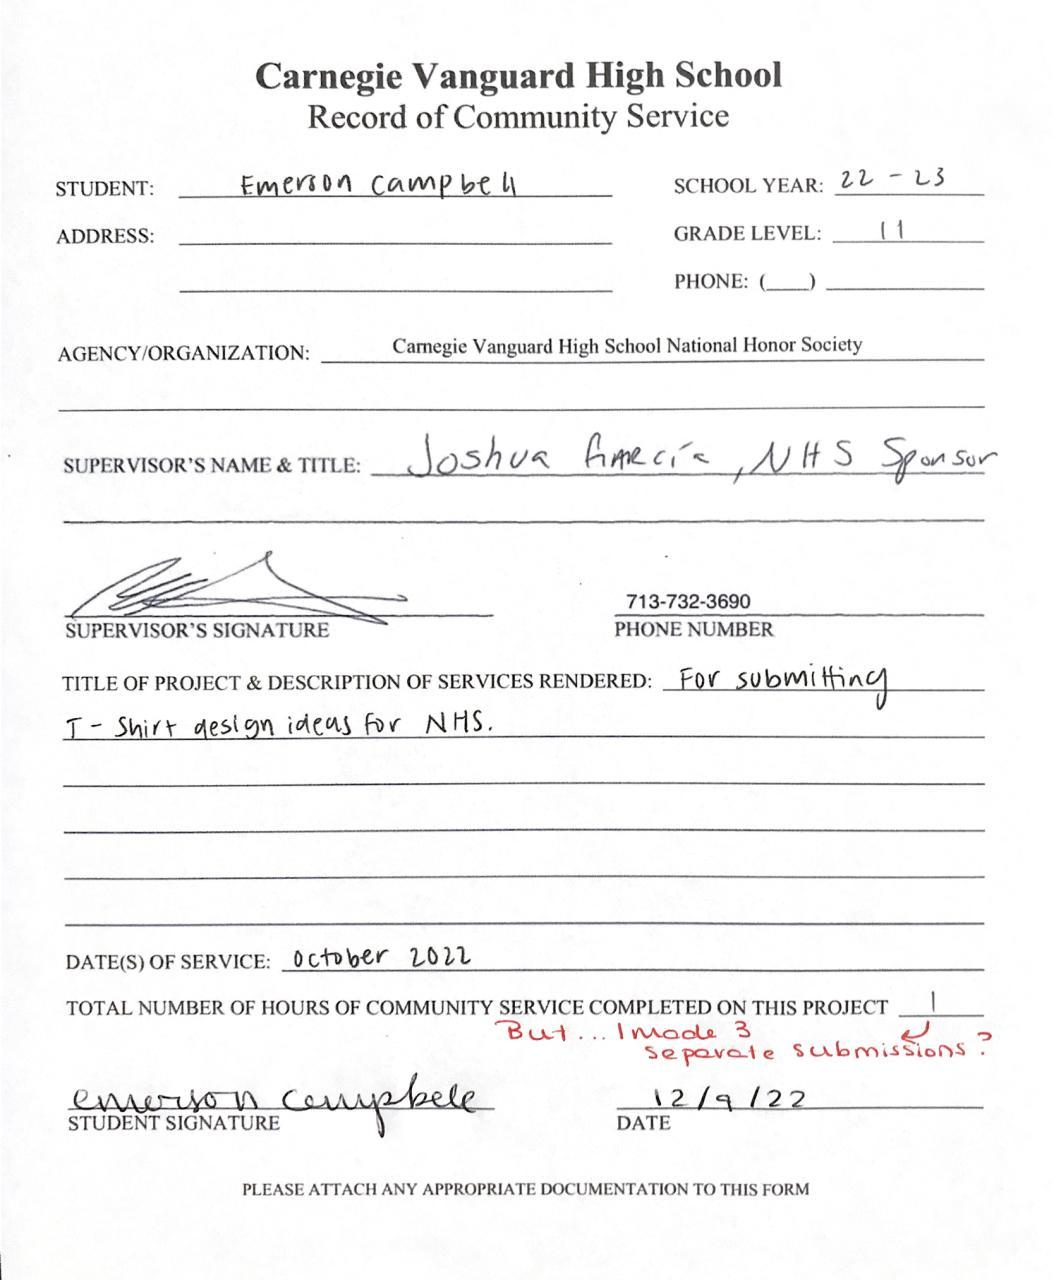 Carnegie Vanguard High School
Record of Community Service
STUDENT: Emerson Campbell
SCHOOL YEAR: 22 - 23
ADDRESS:
GRADE LEVEL: 11
PHONE: (___)
AGENCY/ORGANIZATION: Carnegie Vanguard High School National Honor Society
SUPERVISOR'S NAME & TITLE: Joshua García, NHS Sponsor
713-732-3690
SUPERVISOR'S SIGNATURE
PHONE NUMBER
TITLE OF PROJECT & DESCRIPTION OF SERVICES RENDERED: For submitting
T-Shirt design ideas for NHS.
DATE(S) OF SERVICE: October 2022
TOTAL NUMBER OF HOURS OF COMMUNITY SERVICE COMPLETED ON THIS PROJECT 1
But... I made 3
separate submissions?
emerson campbell
12/9/22
STUDENT SIGNATURE
DATE
PLEASE ATTACH ANY APPROPRIATE DOCUMENTATION TO THIS FORM